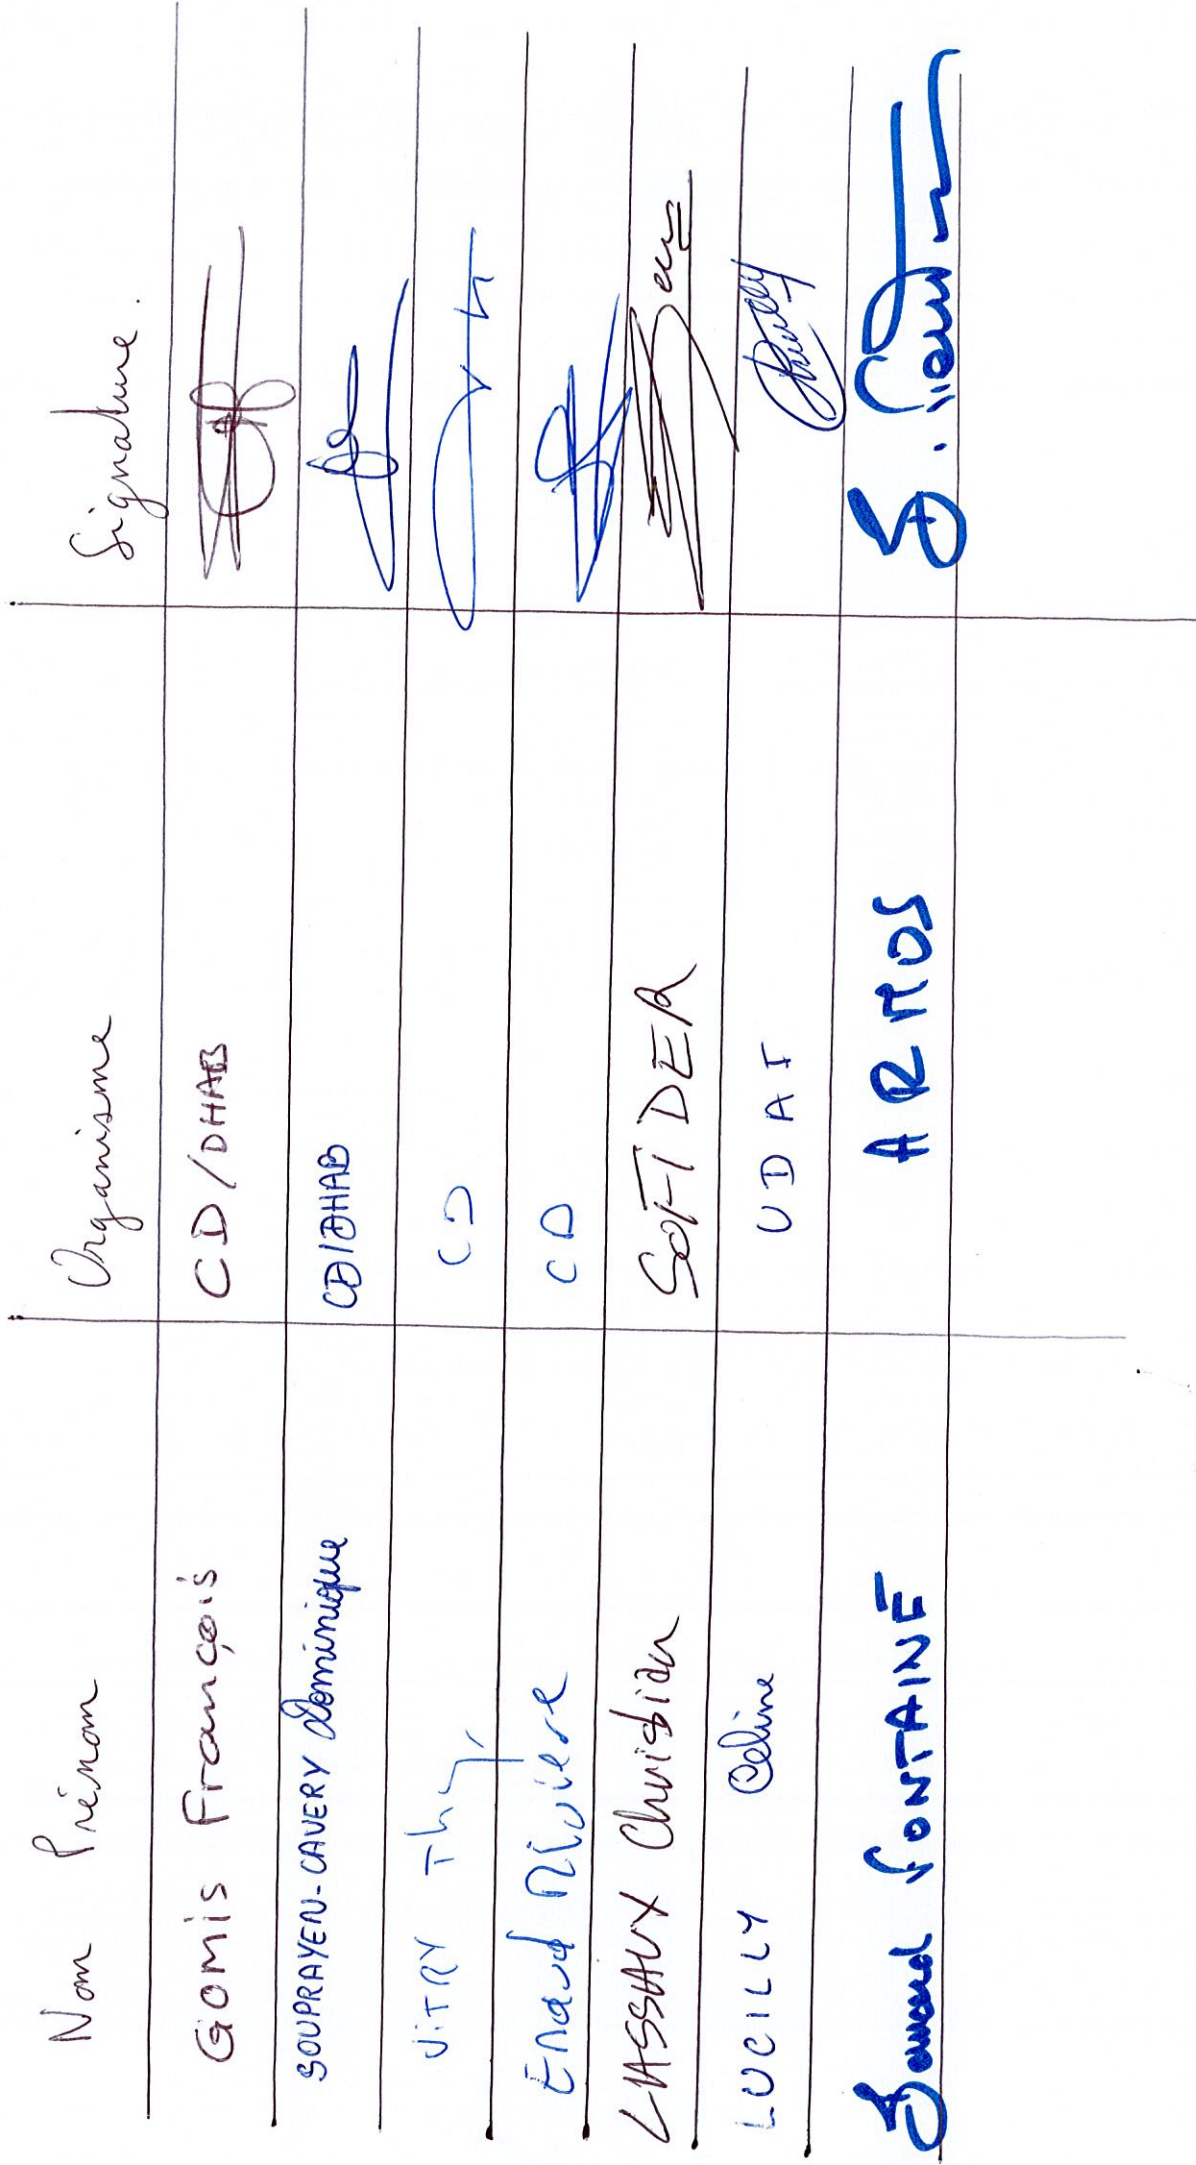 Nom Prénom Organisme Signature.
Gomis François CD/DHAB
SOUPRAYEN-CAVERY Dominique CD/DHAB
VITRY Thy CD
Enaud CD
LASSAUX Christian SOFIDER
LUCILLY Céline UDAF
FONTAINE ARMOS